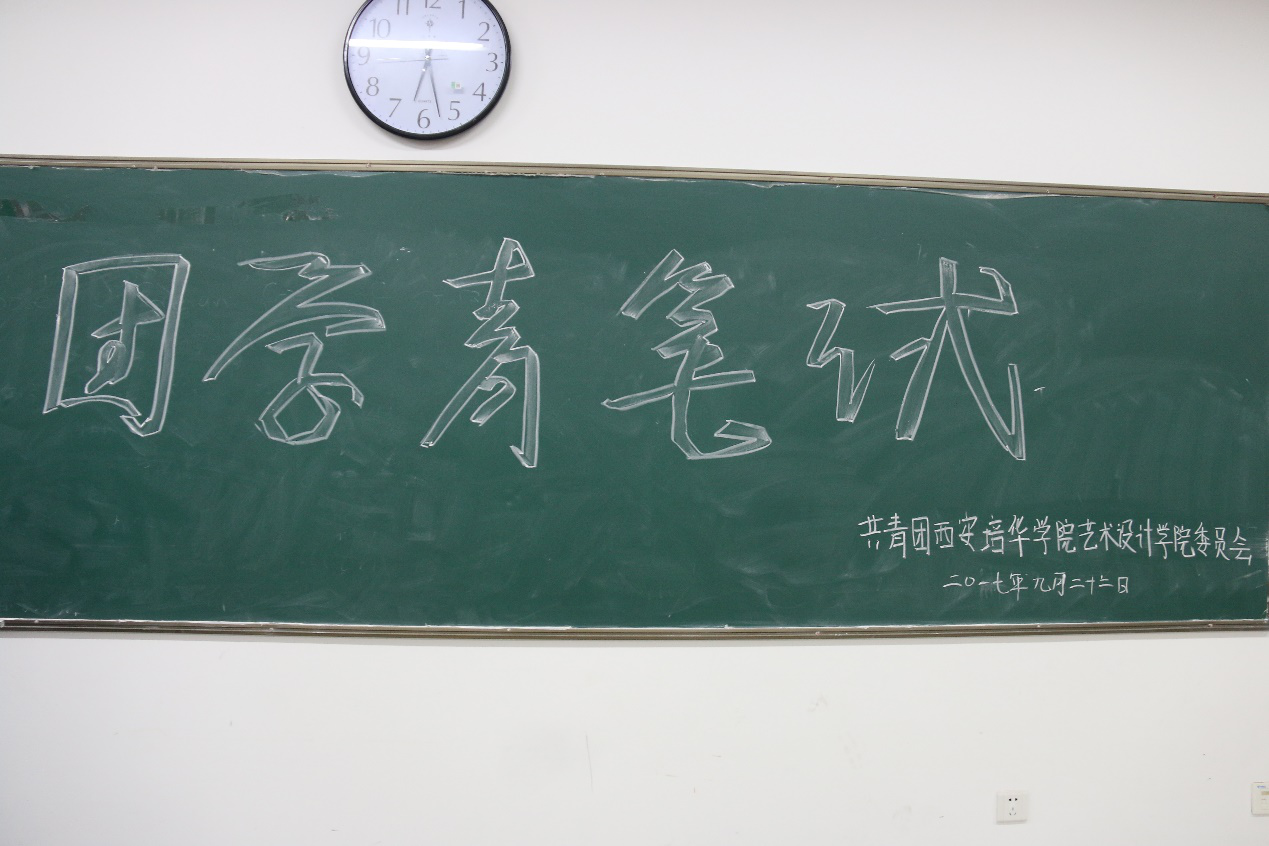 11 12 1
10 2
9 3
8 4
7 6 5
团学青笔试
共青团西安培华学院艺术设计学院委员会
二〇一七年九月二十二日